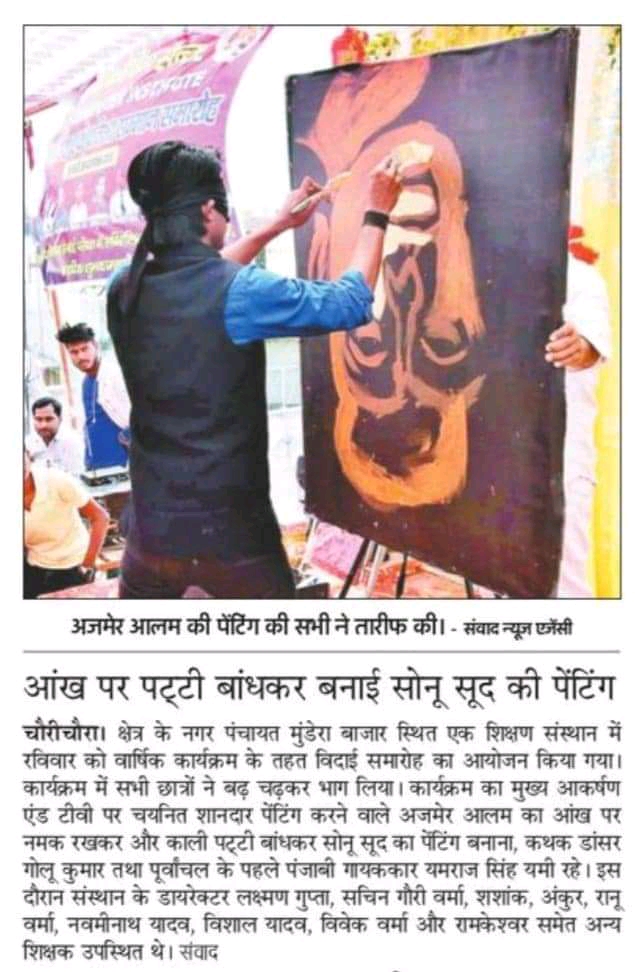 INSTITUTE
सम्मान समारोह
अजमेर आलम की पेंटिंग की सभी ने तारीफ की। - संवाद न्यूज एजेंसी
आंख पर पट्टी बांधकर बनाई सोनू सूद की पेंटिंग
चौरीचौरा। क्षेत्र के नगर पंचायत मुंडेरा बाजार स्थित एक शिक्षण संस्थान में
रविवार को वार्षिक कार्यक्रम के तहत विदाई समारोह का आयोजन किया गया।
कार्यक्रम में सभी छात्रों ने बढ़ चढ़कर भाग लिया। कार्यक्रम का मुख्य आकर्षण
एंड टीवी पर चयनित शानदार पेंटिंग करने वाले अजमेर आलम का आंख पर
नमक रखकर और काली पट्टी बांधकर सोनू सूद का पेंटिंग बनाना, कथक डांसर
गोलू कुमार तथा पूर्वांचल के पहले पंजाबी गायककार यमराज सिंह यमी रहे। इस
दौरान संस्थान के डायरेक्टर लक्ष्मण गुप्ता, सचिन गौरी वर्मा, शशांक, अंकुर, रानू
वर्मा, नवमीनाथ यादव, विशाल यादव, विवेक वर्मा और रामकेश्वर समेत अन्य
शिक्षक उपस्थित थे। संवाद